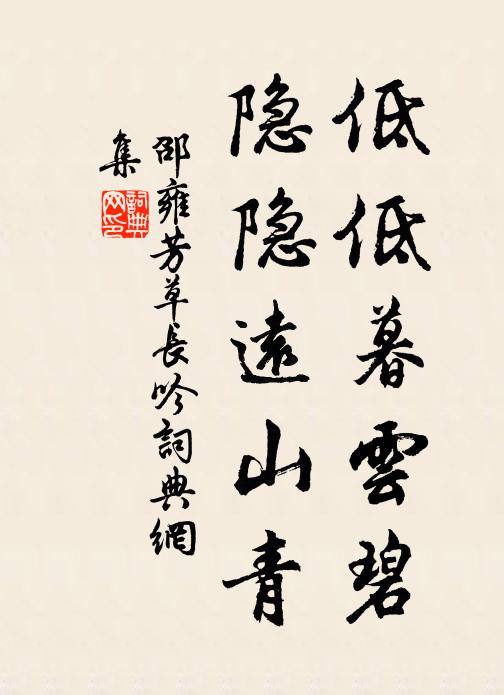 低低暮雲碧
隐隐遠山青
邵雍芳草長吟詞典網
集
詞典
网印